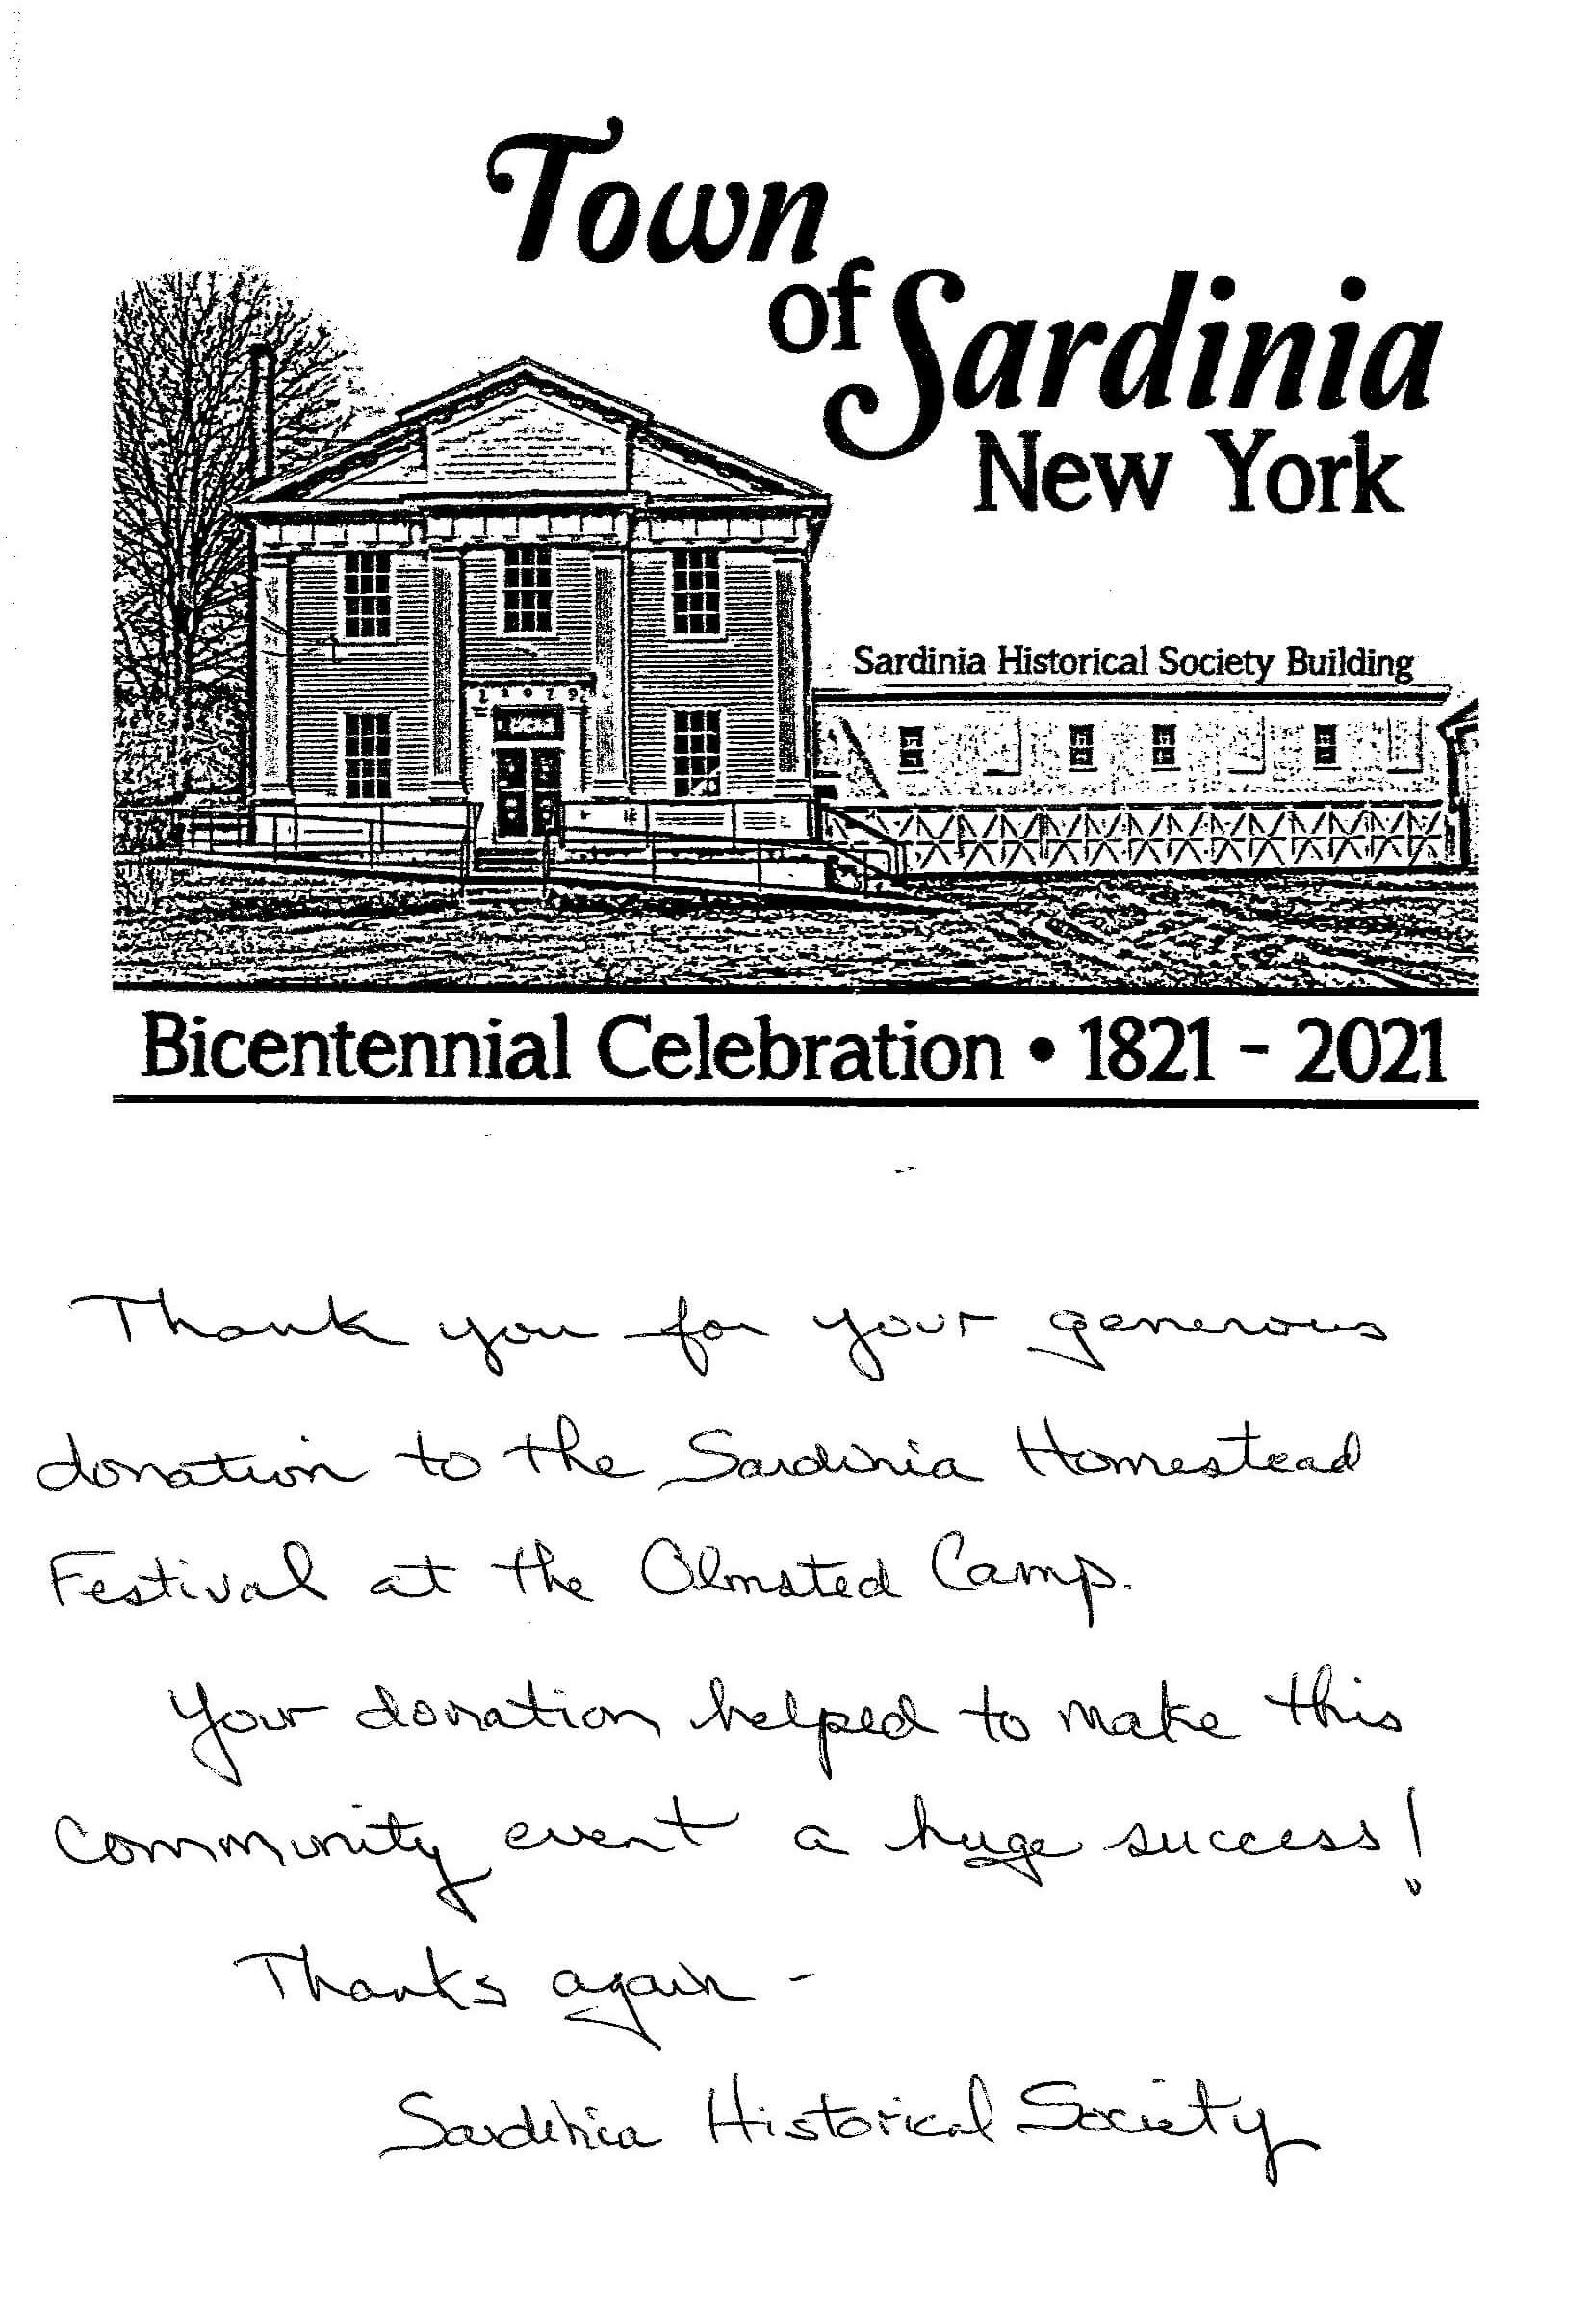 Town
of Sardinia
New York
Sardinia Historical Society Building
Bicentennial Celebration • 1821 - 2021
Thank you for your generous
donation to the Sardinia Homestead
Festival at the Olmsted Camp.
Your donation helped to make this
community event a huge success!
Thanks again -
Sardinia Historical Society